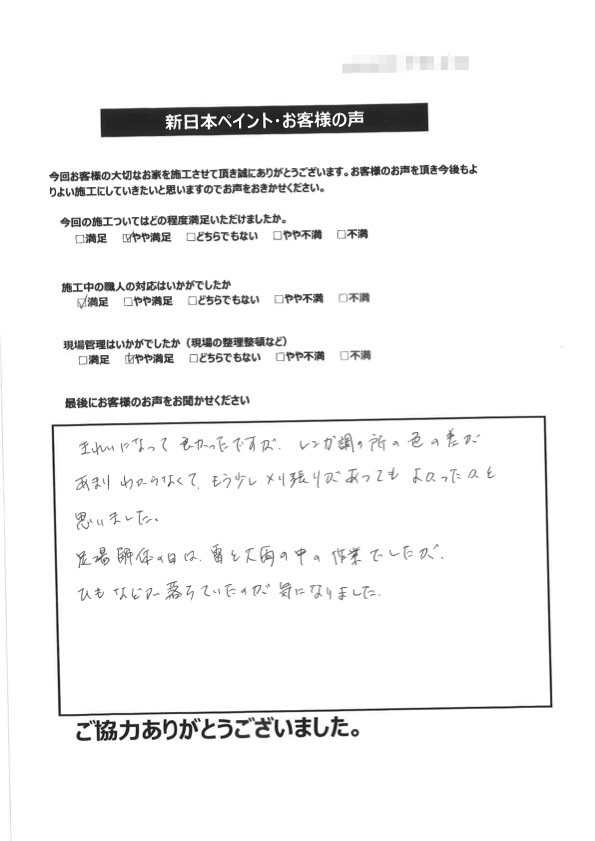 新日本ペイント・お客様の声
今回お客様の大切なお家を施工させて頂き誠にありがとうございます。お客様のお声を頂き今後もよ
りよい施工にしていきたいと思いますのでお声をおきかせください。
今回の施工ついてはどの程度満足いただけましたか。
□満足 ☑やや満足 □どちらでもない □やや不満 □不満
施工中の職人の対応はいかがでしたか
☑満足 □やや満足 □どちらでもない □やや不満 □不満
現場管理はいかがでしたか（現場の整理整頓など）
□満足 ☑やや満足 □どちらでもない □やや不満 □不満
最後にお客様のお声をお聞かせください
きれいになって良かったですが、レンガ調の所の色の差が
あまりわからなくて、もう少しメリ張りがあってもよかったかと
思いました。
足場解体の日は、雷と大雨の中の作業でしたが、
ひもなどが落ちていたのが気になりました。
ご協力ありがとうございました。